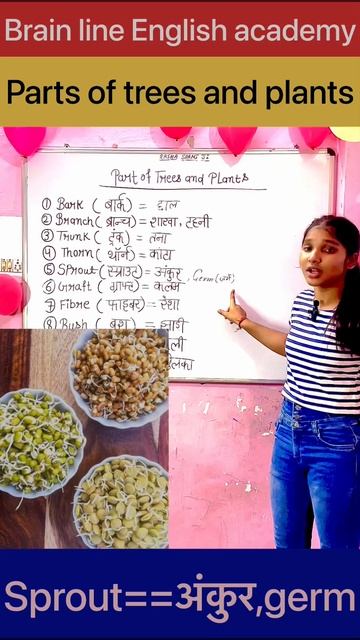 Brain line English academy
Parts of trees and plants
Part of Trees and Plants
① Bark ( बार्क ) = छाल
② Branch ( ब्रान्च ) = शाखा, टहनी
③ Trunk ( ट्रंक ) = तना
④ Thorn ( थॉर्न ) = कांटा
⑤ Sprout ( स्प्राउट ) = अंकुर, Germ (जर्म)
⑥ Graft ( ग्राफ्ट ) = कलम
⑦ Fibre ( फाइबर ) = रेशा
⑧ Bush ( बुश ) = झाड़ी
Sprout==अंकुर,germ